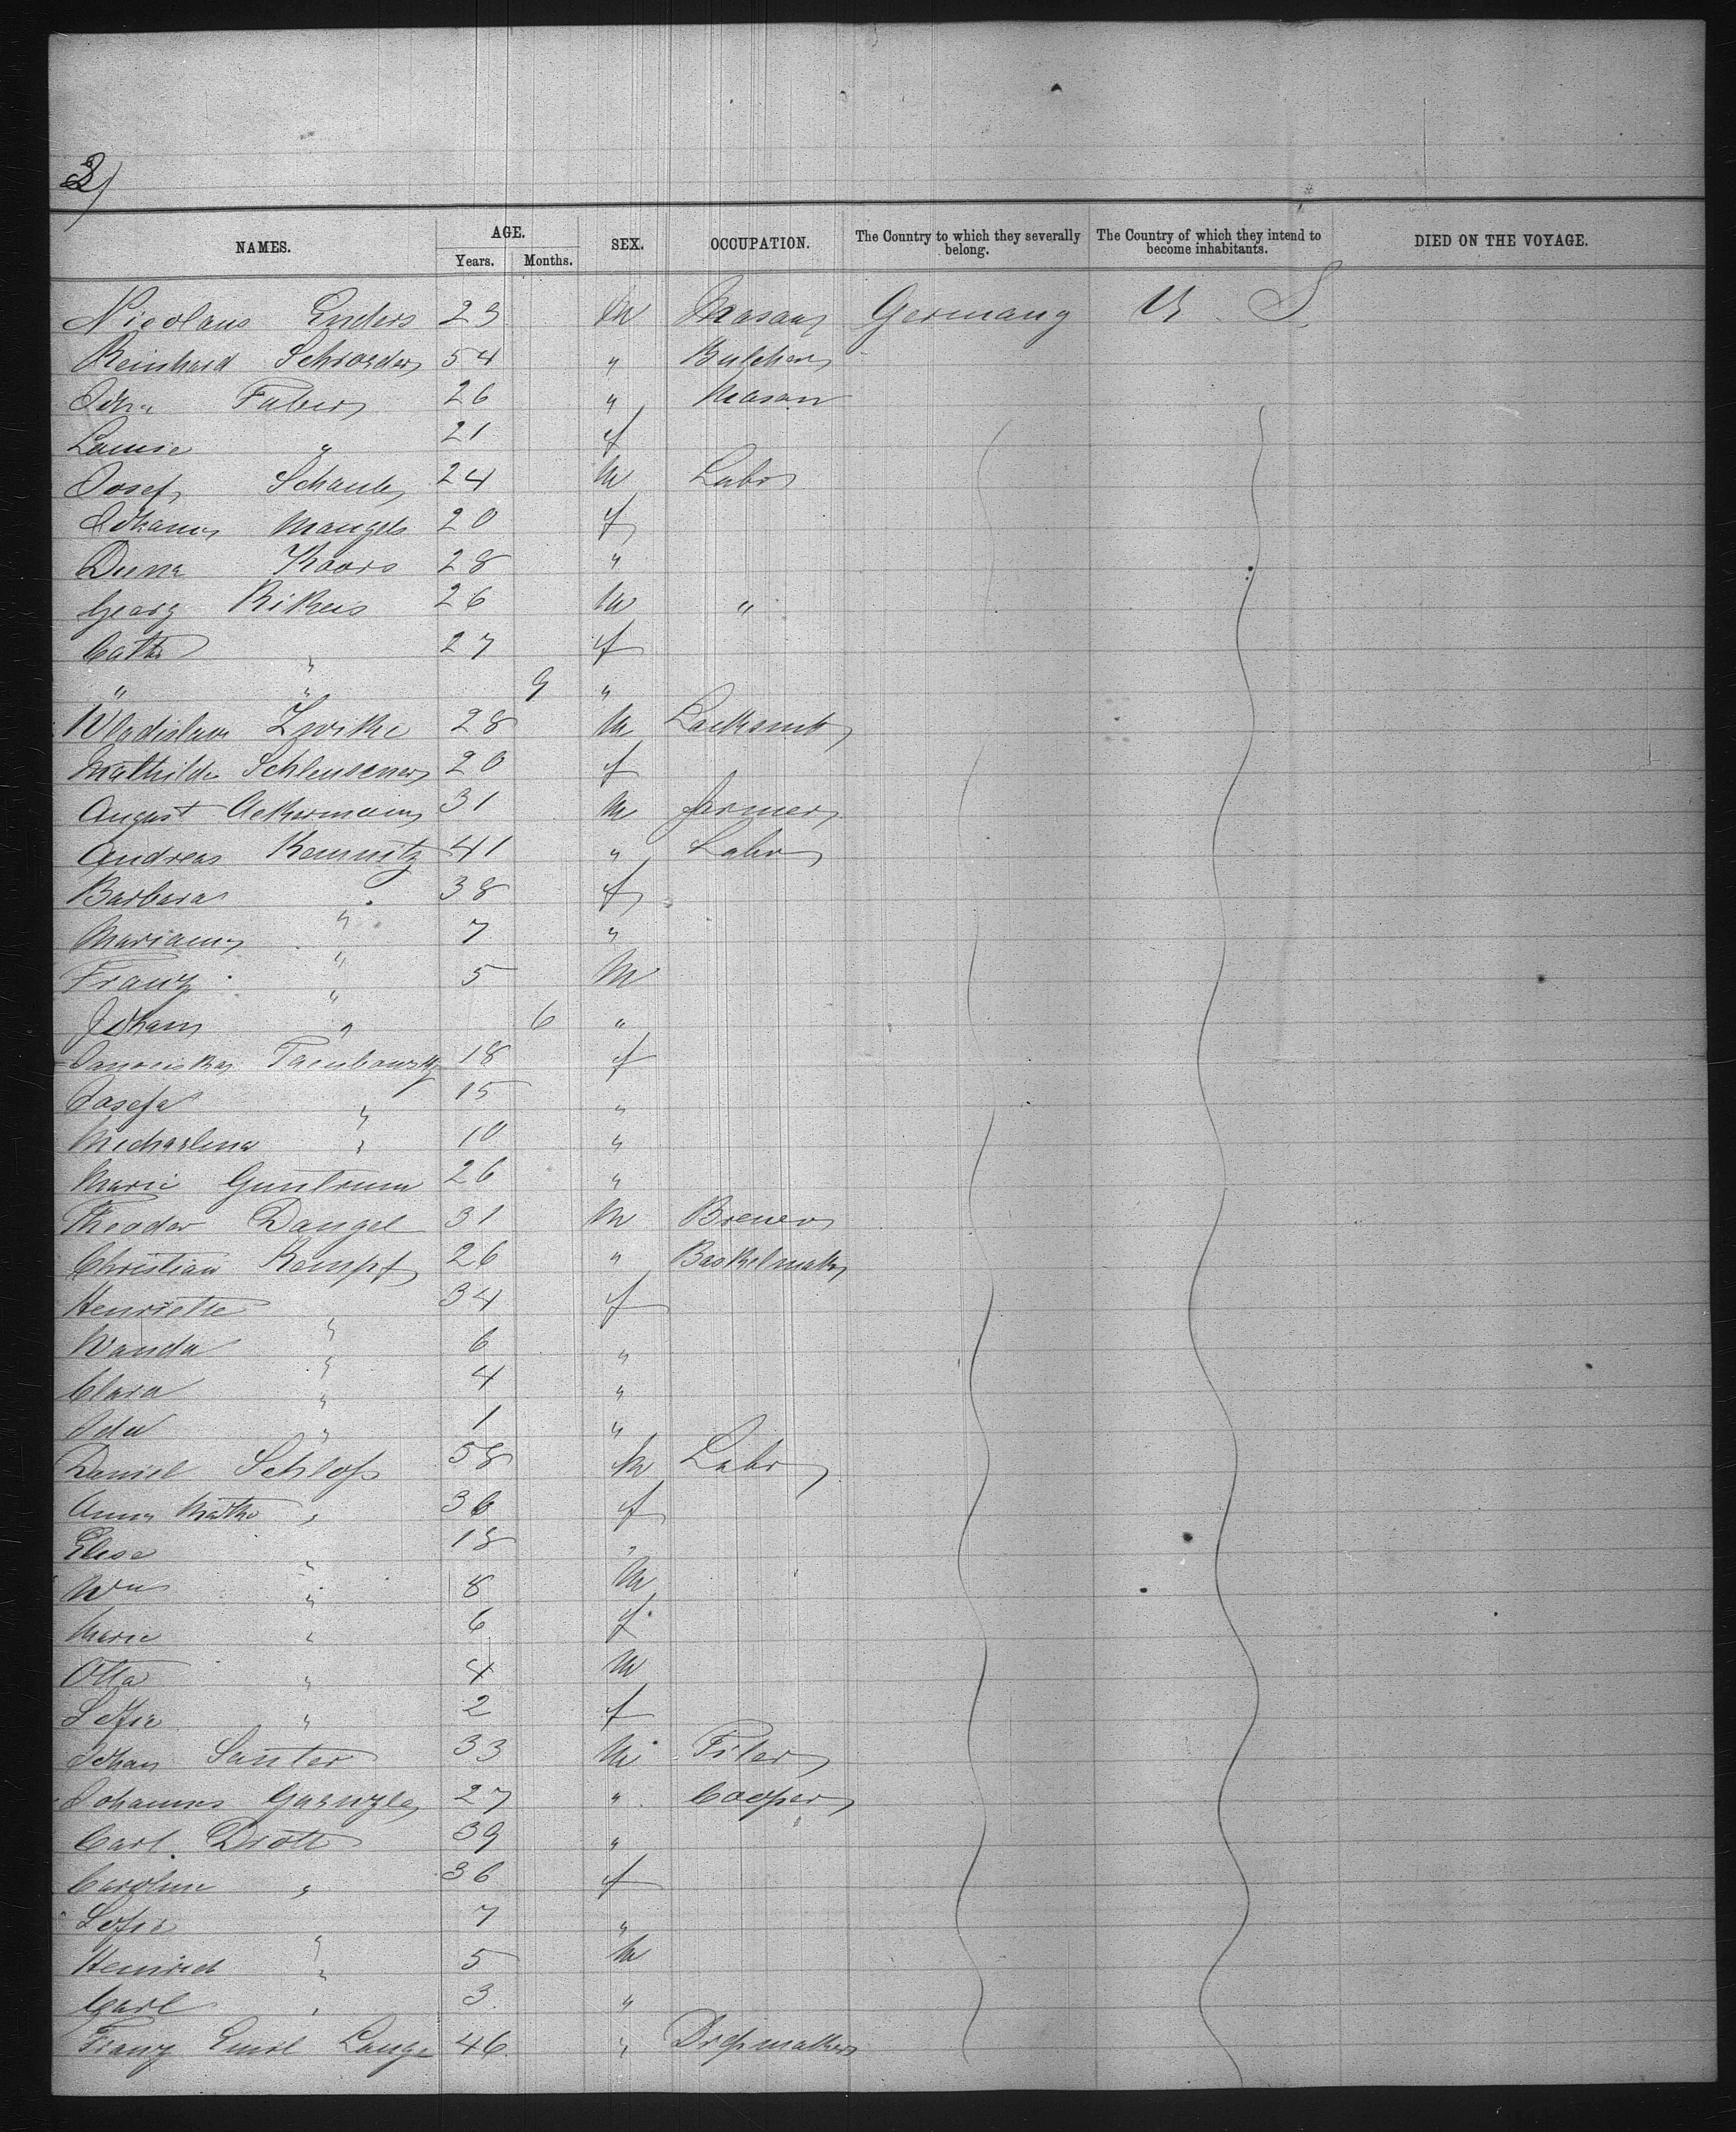 3)
NAMES. AGE. Years. Months. SEX. OCCUPATION. The Country to which they severally belong. The Country of which they intend to become inhabitants. DIED ON THE VOYAGE.
Nicolaus Enders 23 M Mason Germany U. S.
Reinhard Schroeder 54 " Butcher
Faber 26 " Mason
Louise " 21 f
Josef Schaub 24 M Labr
Johanna Mangels 20 f
Koors 28 "
Georg Rikers 26 M "
Cath " 27 f
" " 9 "
Wladislaw Zwike 28 M Locksmith
Mathilde Schleusener 20 f
August Ackermann 31 M farmer
Andreas Kemnitz 41 " Labr
Barbara " 38 f
Marianna " 7 "
Franz " 5 M
Johann " 6 "
18 f
Josefa " 15 "
Michaelina " 10 "
Marie Guntrum 26 "
Theodor Dangel 31 M Brewer
Christian Kempf 26 " Basketmaker
Henriette " 34 f
Wanda " 6 "
Clara " 4 "
Ida " 1 "
Daniel Schloss 58 M Labr
Anna " 36 f
Elise " 18 "
Wm " 8 M
Marie " 6 f
Otto " 4 M
Sofie " 2 f
Johan Sauter 33 M Filer
Johannes 27 " Cooper
Carl Drott 39 "
Caroline " 36 f
Sofie " 7 "
Heinrich " 5 M
Carl " 3 "
Franz Emil Lange 46 " Dressmaker